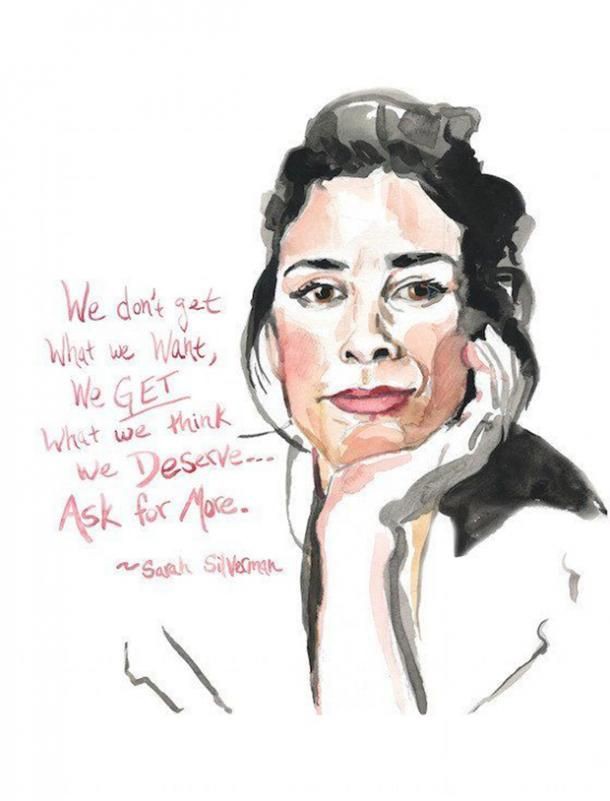 We don't get
What we Want,
We GET
What we think
we Deserve...
Ask for More.
~Sarah Silverman